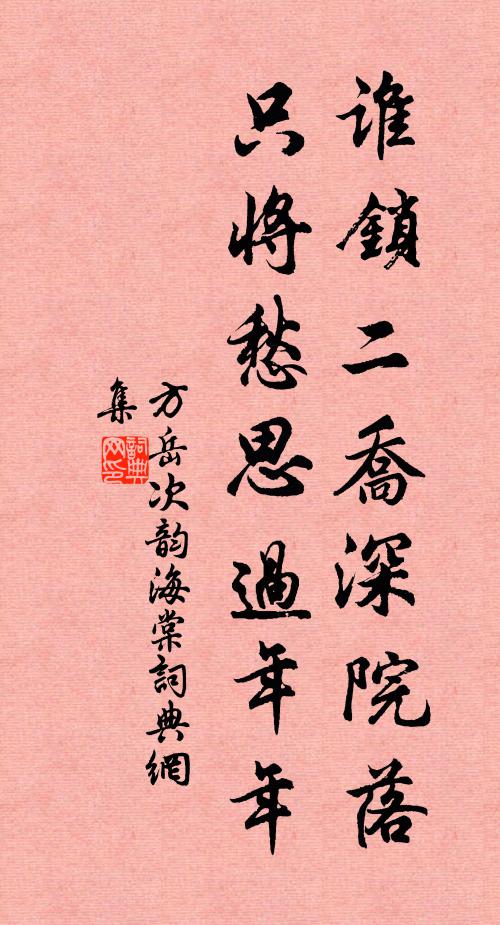 誰鎖二喬深院落
只將愁思過年年
方岳次韵海棠詞典網
集
詞典
网印